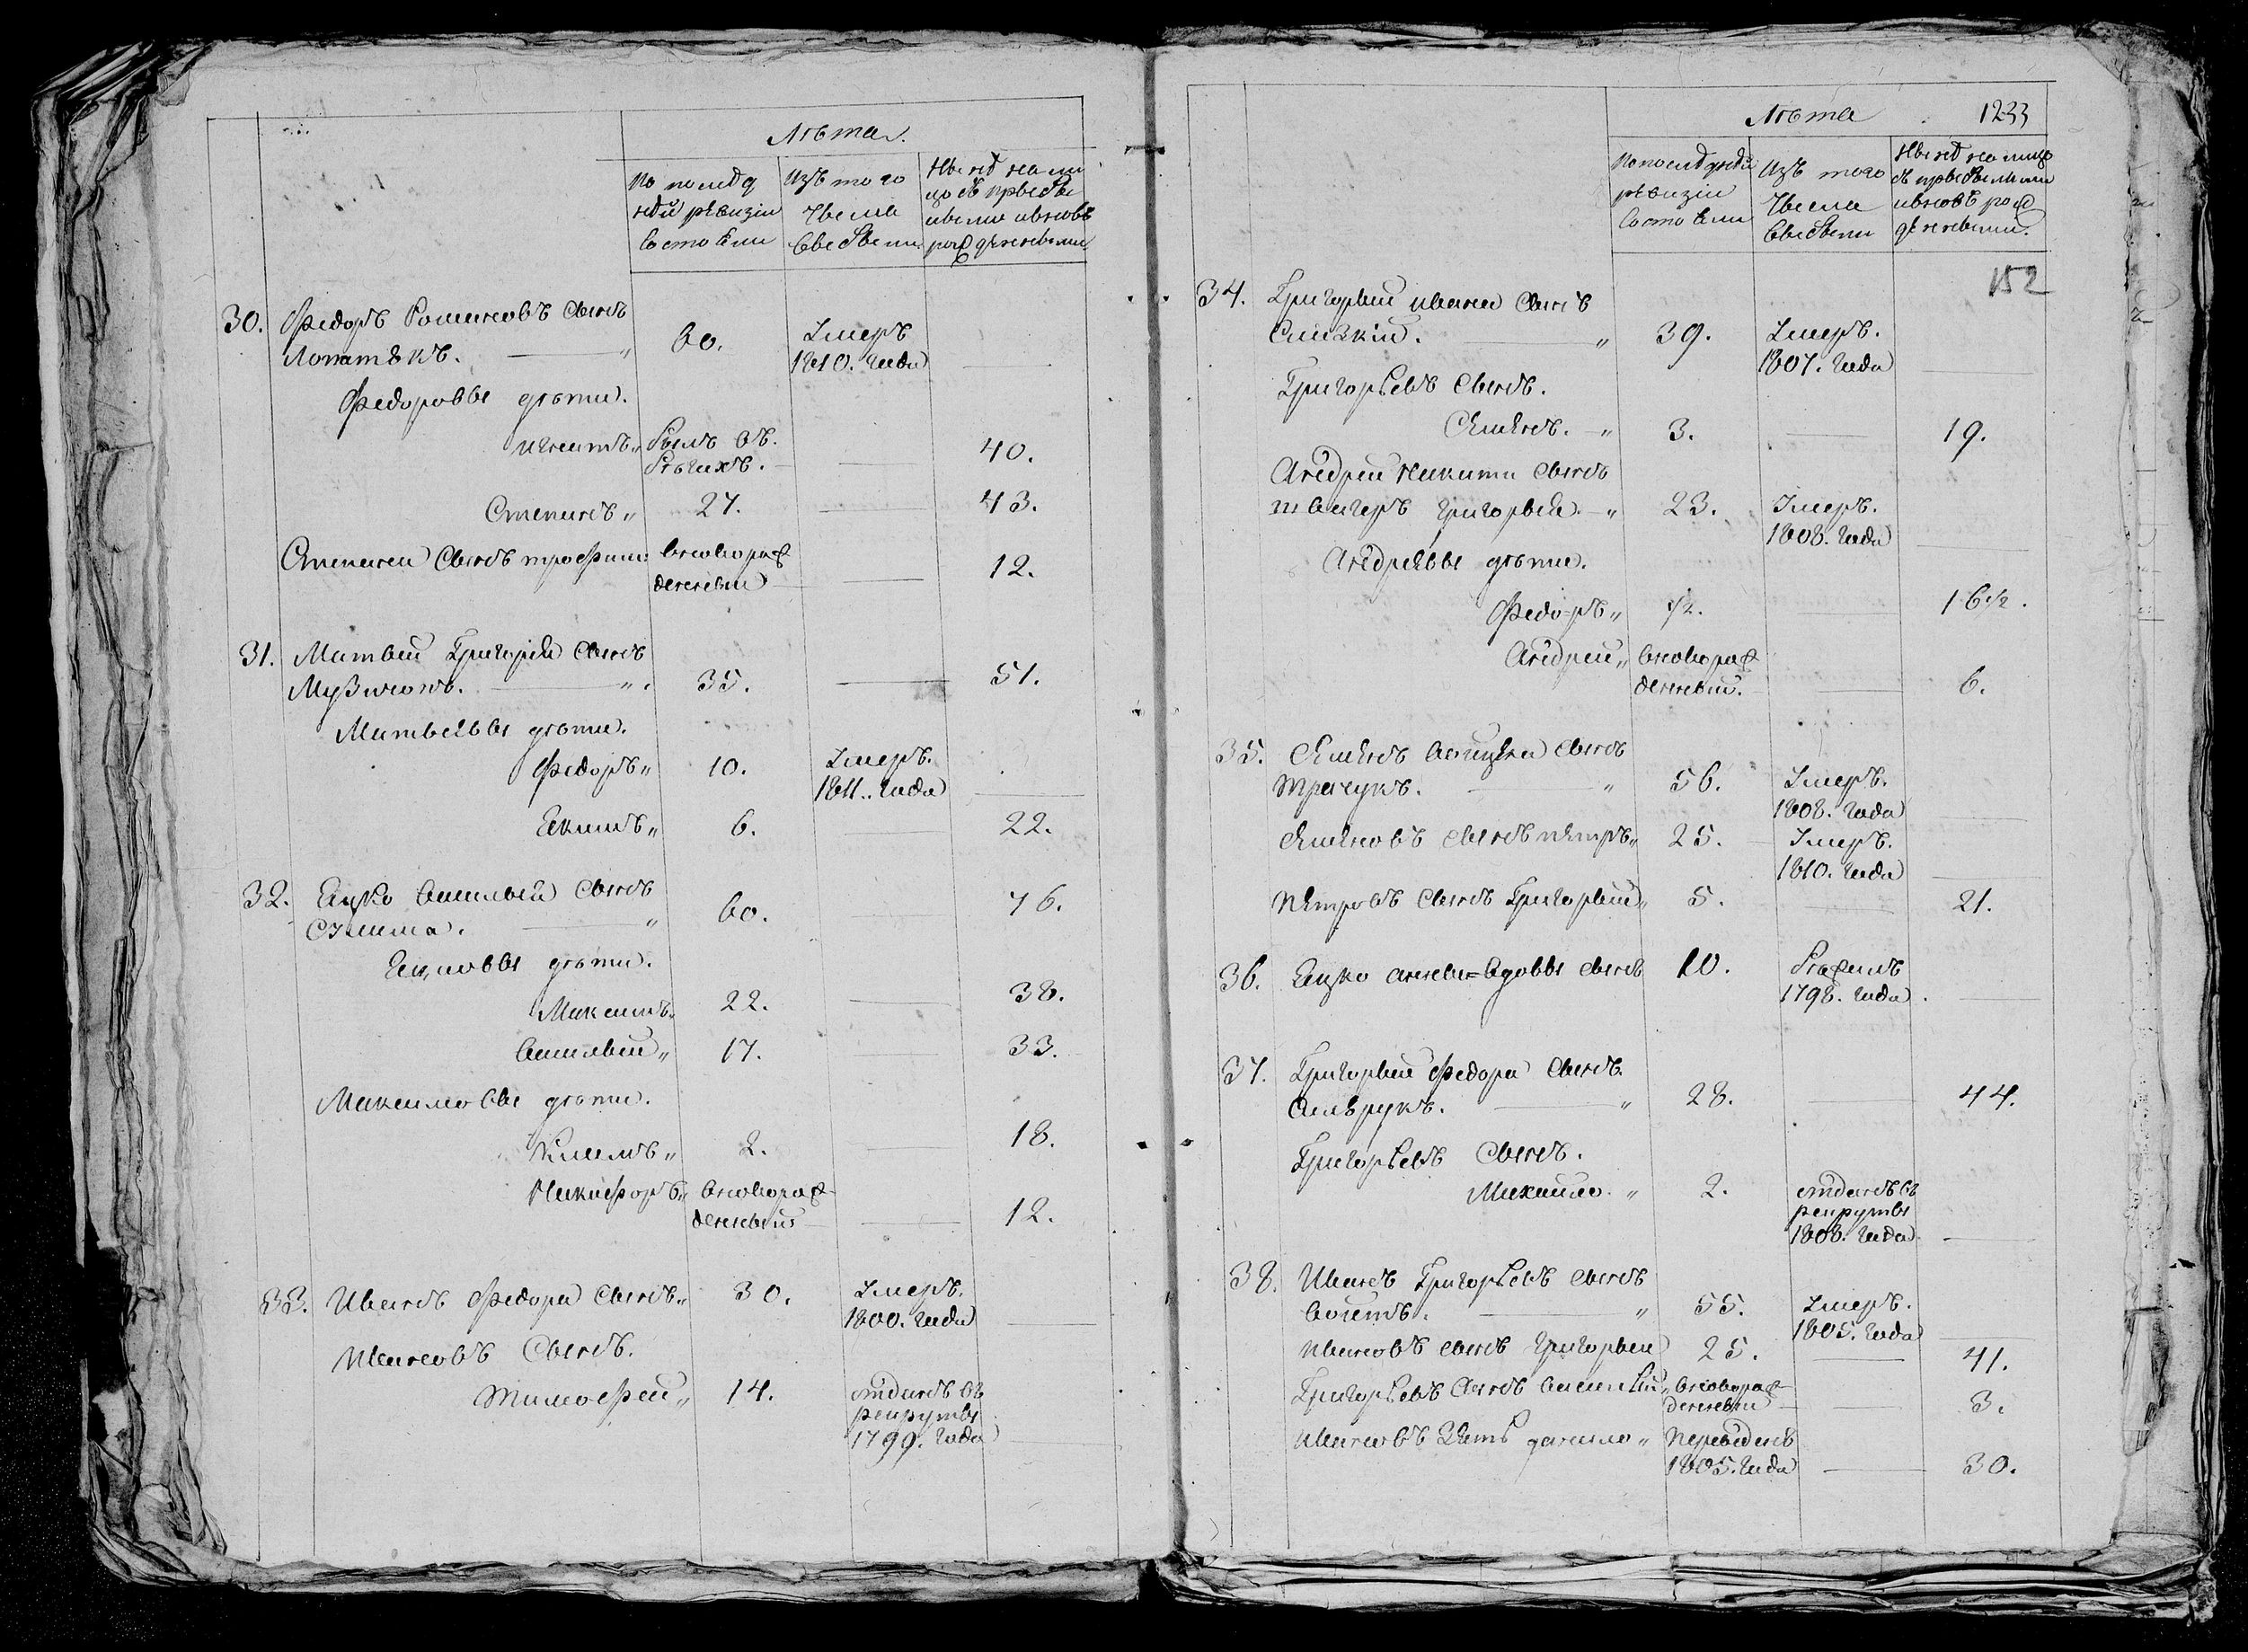 Лѣта.
По послѣд
ней ревизiи
состояли
Изъ того
числа
выбыли
Ныне на ли
цо съ прибы
лыми и вновь
рожденными
30. Федоръ Романовъ сынъ
Лопатюкъ. 60. Умеръ
1810. года
Федоровы дѣти.
Игнатъ былъ въ
бѣгахъ. 40.
Степанъ 27. 43.
Степана сынъ трофим вновьрож
денный 12.
31. Матвей Григорiя сынъ
Музичокъ. 35. 51.
Матвеевы дѣти.
Федоръ 10. Умеръ.
1811. года
Екимъ 6. 22.
32. Яцко Василья сынъ
60. 76.
Яцковы дѣти.
Максимъ 22. 38.
Василий 17. 33.
Максимовы дѣти.
Климъ 2. 18.
Никифоръ вновьрож
денный 12.
33. Иванъ Федора сынъ 30. Умеръ.
1800. года
Ивановъ сынъ.
Тимофей 14. отданъ въ
рекруты
1799. года
Лѣта 1233
По последней
ревизiи
состояли
Изъ того
числа
выбыли
Ныне на лицо
съ прибылыми
и вновь рож
денными.
152
34. Григорий ивана сынъ
Слизкiй. 39. Умеръ.
1807. года
Григорьевъ сынъ.
Семенъ. 3. 19.
Андрей Никити сынъ
швагеръ григорья 23. Умеръ.
1808. года
Андреевы дѣти.
Федоръ 1/2. 16 1/2.
Андрей вновьрож
денный. 6.
35. Семенъ сынъ
Трачукъ. 56. Умеръ.
1808. года
Семеновъ сынъ петръ 25. Умеръ.
1810. года
Петровъ сынъ Григорий 5. 21.
36. Яцко анны вдовы сынъ 10. бежалъ
1798. года
37. Григорий федора сынъ
28. 44.
Григорьевъ сынъ.
Михайло 2. отданъ въ
рекруты
1808. года
38. Иванъ Григорьевъ сынъ
55. Умеръ.
1805. года
Ивановъ сынъ григорий 25. 41.
Григорьевъ сынъ василий вновьрож
денный 3.
Ивановъ зять данило переведенъ
1805. года 30.